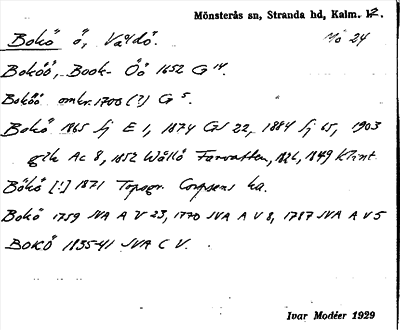 Mönsterås sn, Stranda hd, Kalm. l.
Bokö ö, Vållö. Mö 24
Boköö, Book- Öö 1652 G 14.
Boköö omkr. 1700 (?) G 5.
Bokö 1865 fj E 1, 1874 GS 22, 1884 fj 65, 1903
glk Ac 8, 1852 Wållö Farvatten, 1826, 1849 Krt
Bökö [!] 1871 Topogr. Corpsens ka.
Bokö 1759 SVA A V 23, 1770 SVA A V 8, 1787 SVA A V 5
BOKÖ 1835-41 SVA C V.
Ivar Modéer 1929